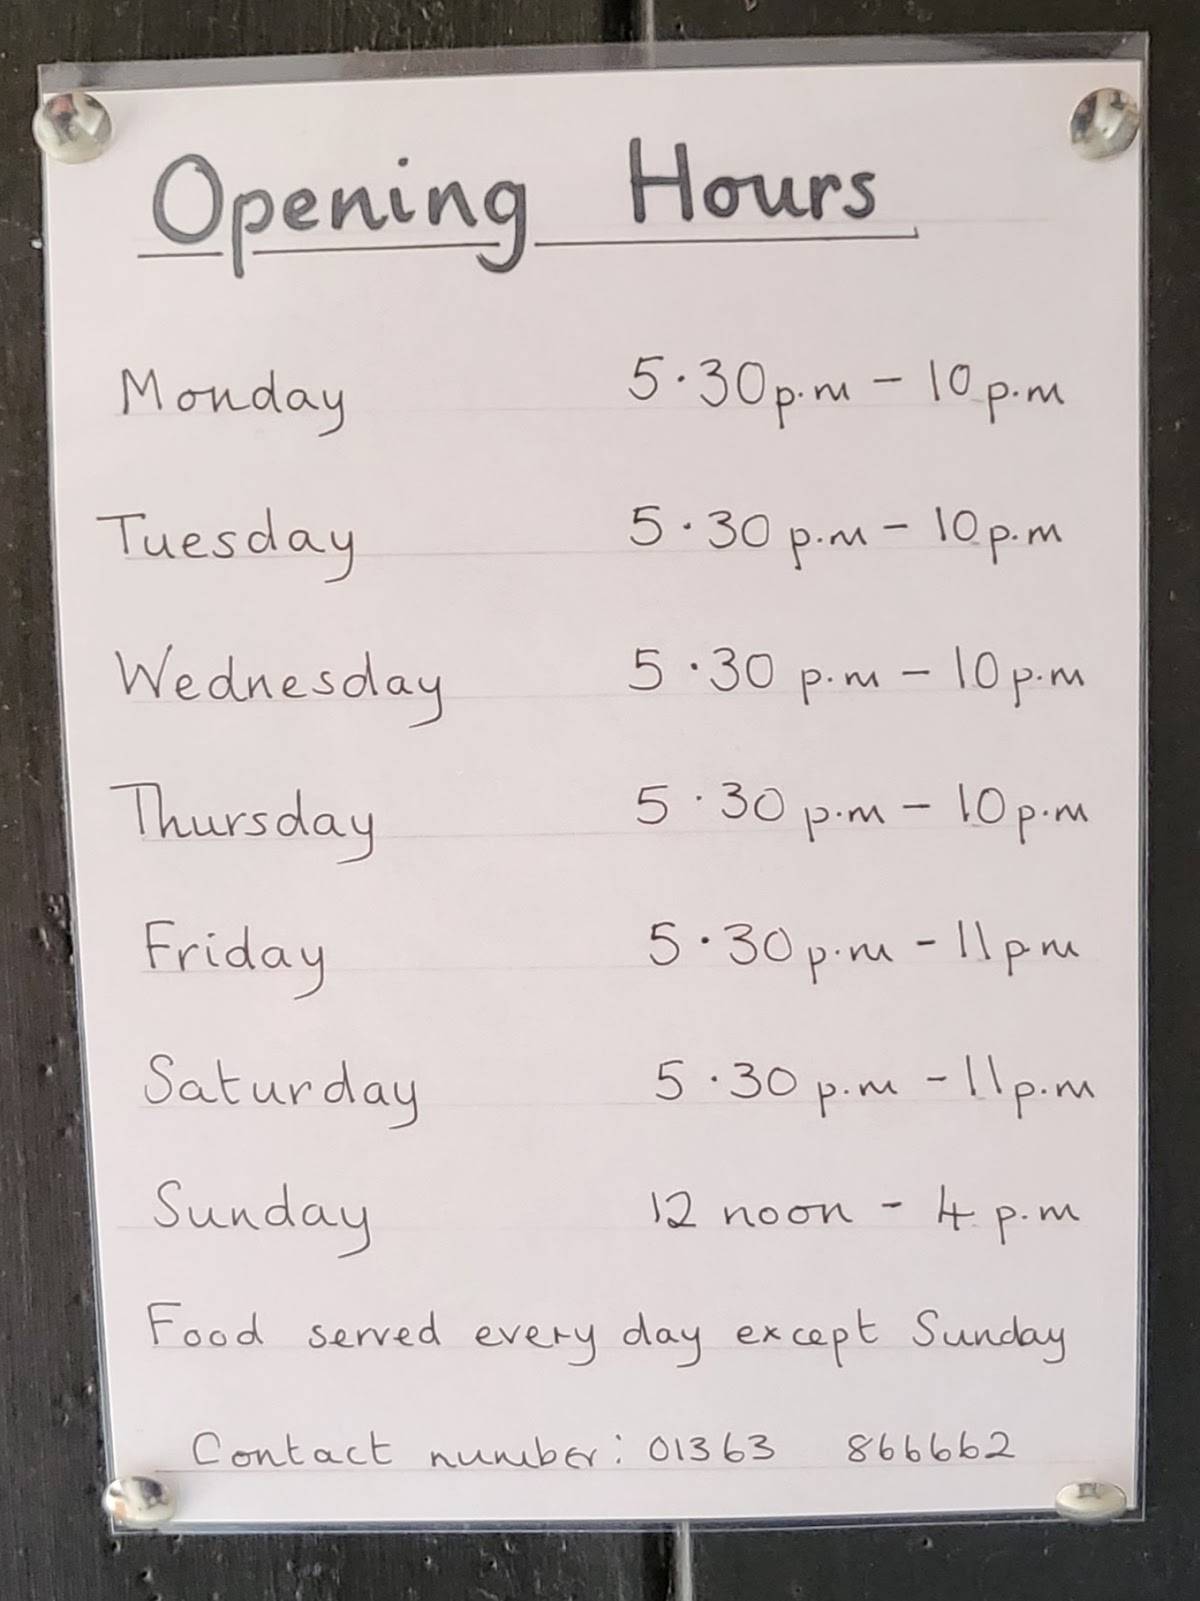 Opening Hours
Monday 5·30p.m - 10p.m
Tuesday 5·30 p.m - 10p.m
Wednesday 5·30 p.m - 10p.m
Thursday 5·30 p.m - 10p.m
Friday 5·30p.m - 11pm
Saturday 5·30 p.m - 11p.m
Sunday 12 noon - 4 p.m
Food served every day except Sunday
Contact number: 01363 866662